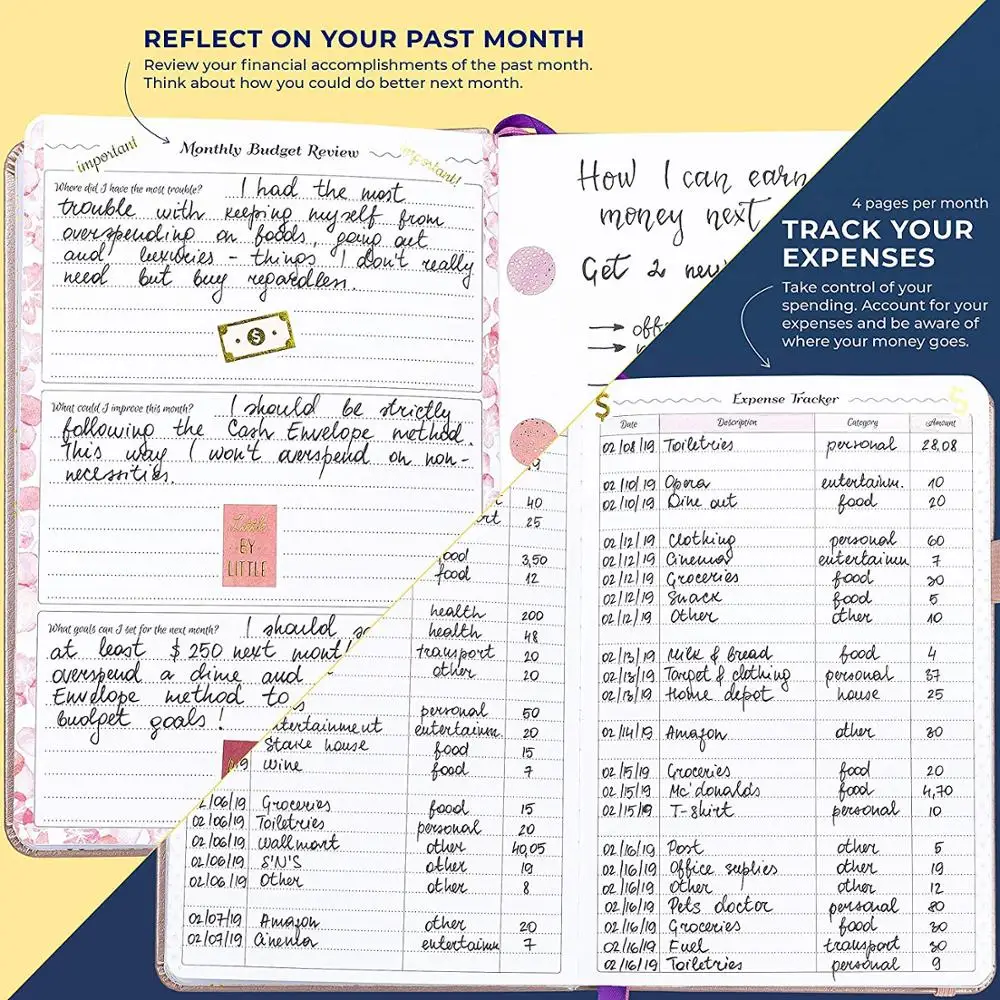 REFLECT ON YOUR PAST MONTH
Review your financial accomplishments of the past month.
Think about how you could do better next month.
important
Monthly Budget Review
important!
Where did I have the most trouble? I had the most
trouble with keeping myself from
overspending on foods, going out
and luxuries - things I don't really
need but buy regardless.
$
What could I improve this month? I should be strictly
following the Cash Envelope method.
This way I won't overspend on non-
necessities.
Little
BY
LITTLE
What goals can I set for the next month? I should
at least $250 next
overspend a dime and
Envelope method to
budget goals!
How I can earn
money next
Get 2
4 pages per month
TRACK YOUR
EXPENSES
Take control of your
spending. Account for your
expenses and be aware of
where your money goes.
40
25
food 3,50
food 12
health 200
health 48
transport 20
other 20
personal 50
entertainm. 20
Stake house food 15
wine food 7
Groceries food 15
02/06/19 Toiletries personal 20
02/06/19 Wallmart other 40,05
02/06/19 S'N'S other 19
02/06/19 Other other 8
02/07/19 Amazon other 20
02/07/19 Cinema entertainm 7
$ Expense Tracker $
Date Description Category Amount
02/08/19 Toiletries personal 28,08
02/10/19 Opera entertainm. 10
02/10/19 Dine out food 20
02/12/19 Clothing personal 60
02/12/19 Cinema entertainm 7
02/12/19 Groceries food 30
02/12/19 Snack food 5
02/12/19 Other other 10
02/13/19 Milk & bread food 4
02/13/19 Target & clothing personal 37
02/13/19 Home depot house 25
02/14/19 Amazon other 30
02/15/19 Groceries food 20
02/15/19 Mc'donalds food 4,70
02/15/19 T-shirt personal 10
02/16/19 Post other 5
02/16/19 Office suplies other 19
02/16/19 Other other 12
02/16/19 Pets doctor personal 80
02/16/19 Groceries food 30
02/16/19 Fuel transport 30
02/16/19 Toiletries personal 9